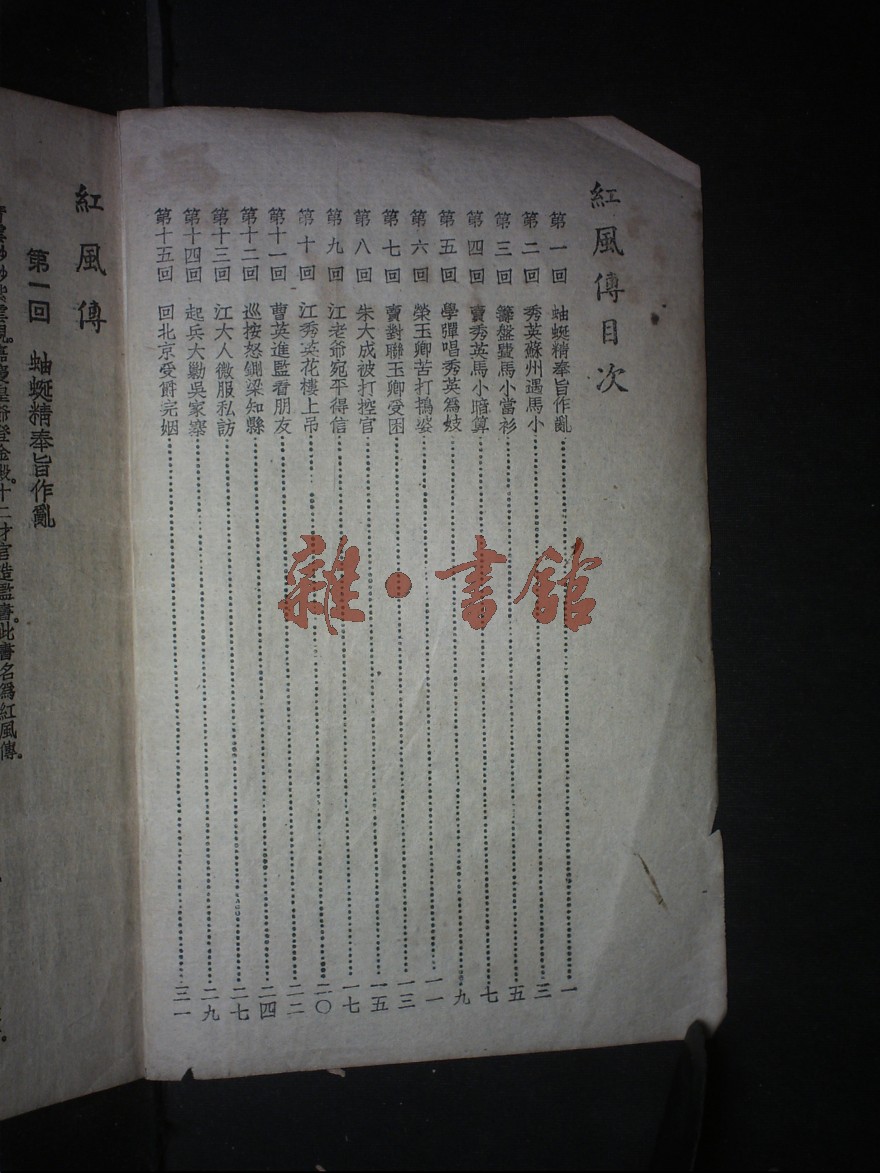 紅風傳目次
第一回 蚰蜒精奉旨作亂 一
第二回 秀英蘇州遇馬小 三
第三回 籌盤蹔馬小當衫 五
第四回 賣秀英馬小暗算 七
第五回 學彈唱秀英為妓 九
第六回 榮玉卿苦打鴇婆 一一
第七回 賣對聯玉卿受困 一三
第八回 朱大成被打控官 一五
第九回 江老爺宛平得信 一七
第十回 江秀英花樓上吊 二〇
第十一回 曹英進監看朋友 二二
第十二回 巡按怒鍘梁知縣 二四
第十三回 江大人微服私訪 二七
第十四回 起兵大勦吳家寨 二九
第十五回 回北京愛爵完姻 三一
紅風傳
第一回 蚰蜒精奉旨作亂
登金殿。十二才官造監書。此書名為紅風傳。
雜·書館